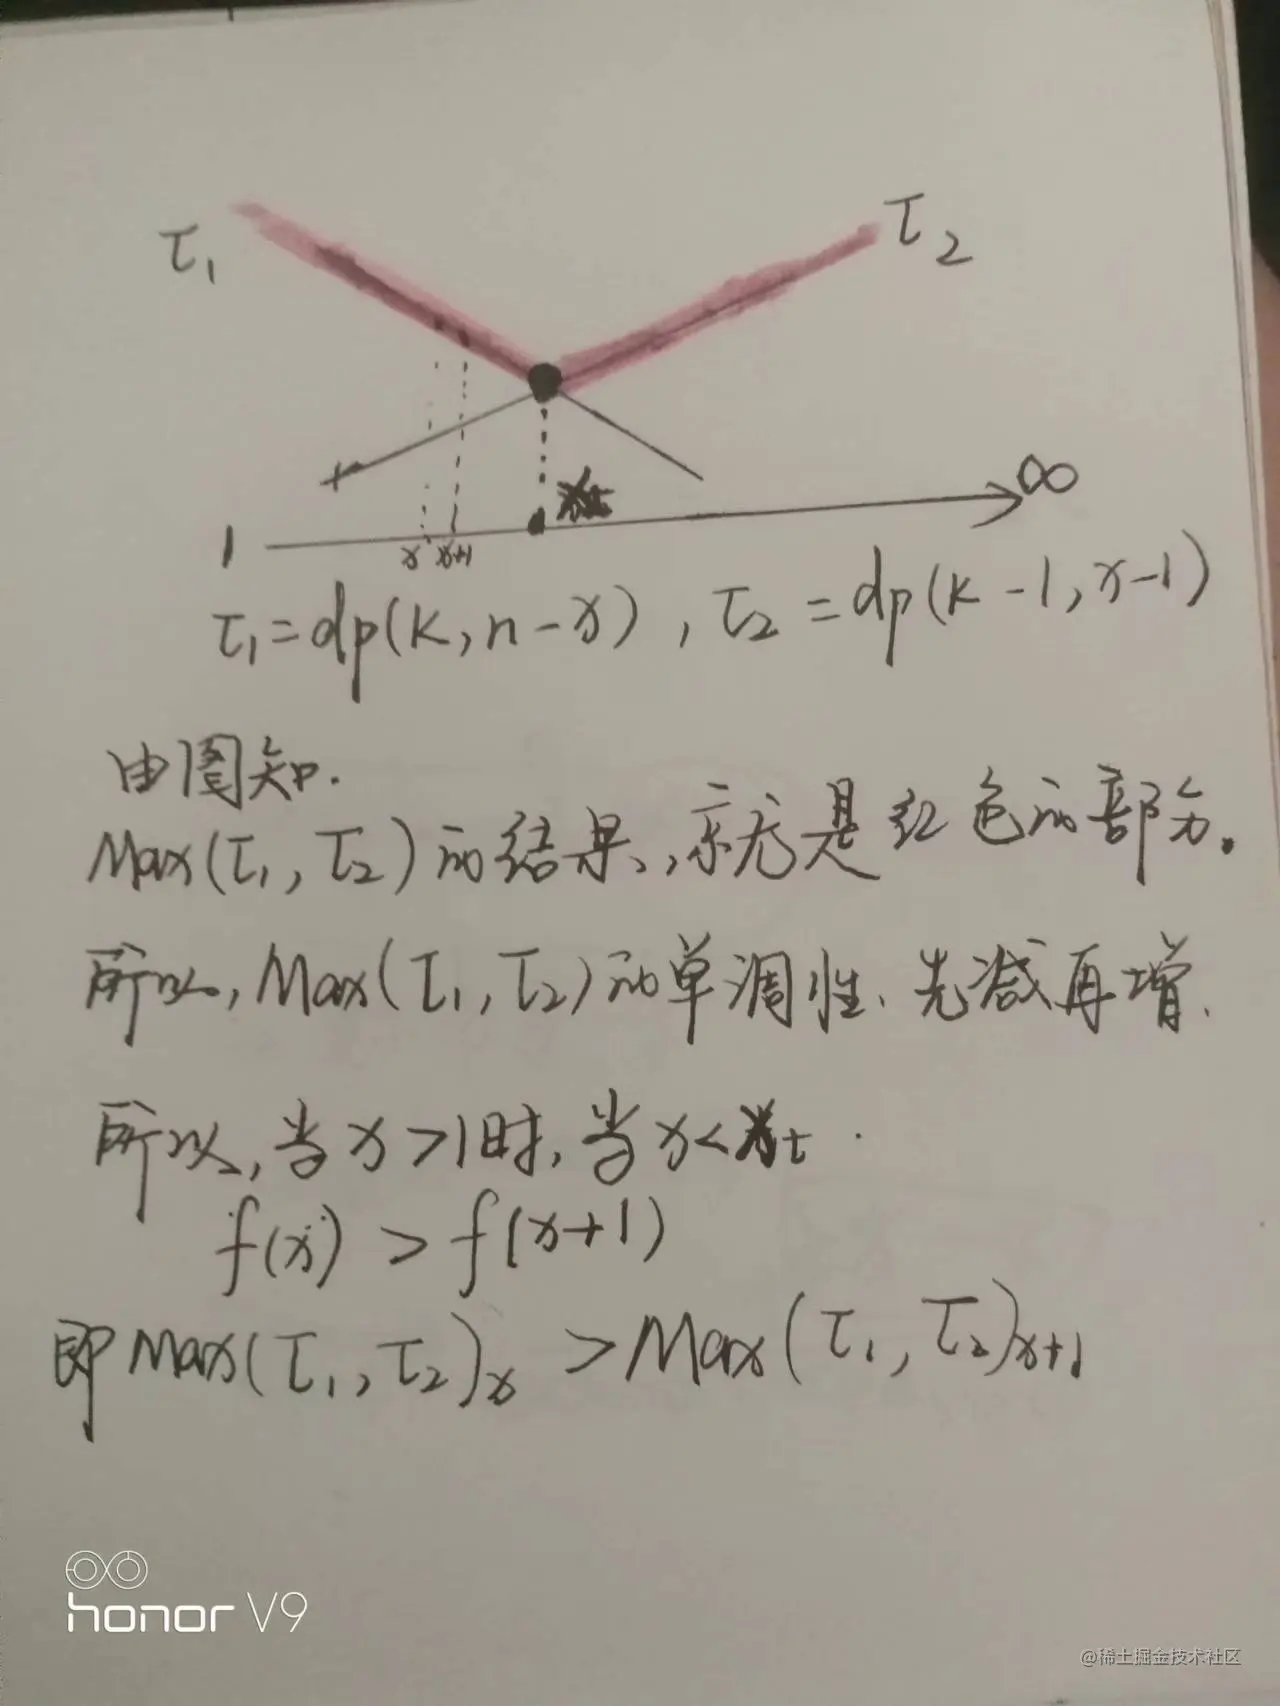 τ₁ τ₂
∞
1 x x+1
τ₁=dp(k,n-x),τ₂=dp(k-1,x-1)
由图知.
Max(τ₁,τ₂)的结果,就是红色的部分。
所以,Max(τ₁,τ₂)的单调性、先减再增.
所以,当x>1时,当x<
f(x)>f(x+1)
即Max(τ₁,τ₂)ₓ>Max(τ₁,τ₂)ₓ₊₁
honor V9
@稀土掘金技术社区